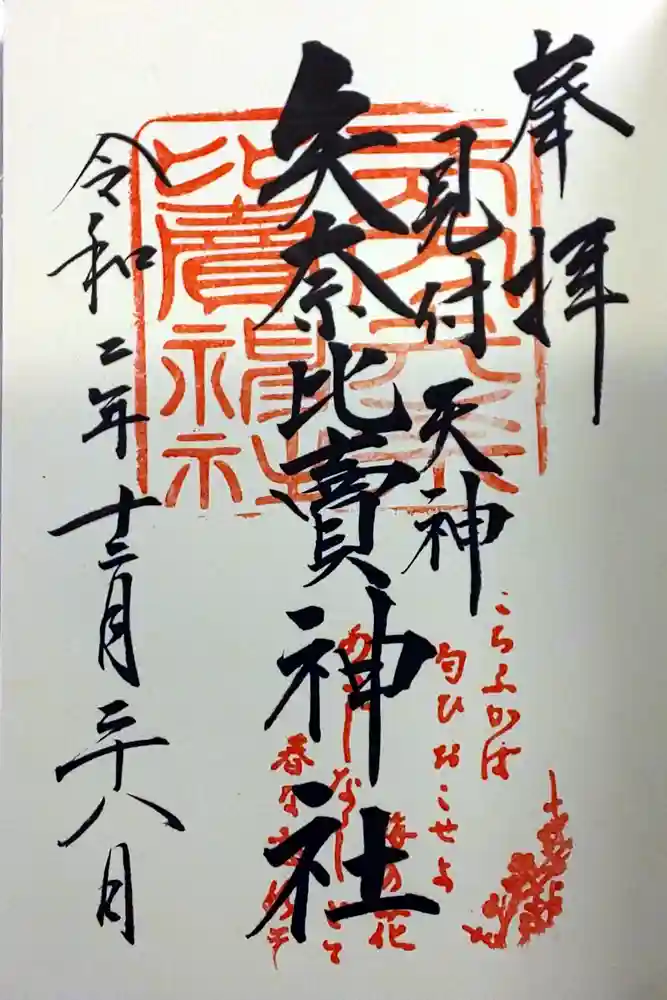 奉拝
見付天神
矢奈比賣神社
令和二年十二月二十八日
比賣神社
こちふかば
匂ひおこせよ
梅の花
あるじなしとて
春な忘れそ